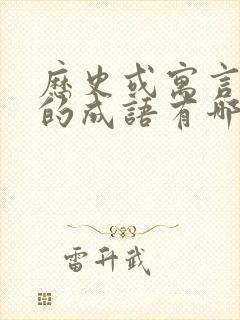 歷史或寓言
的成語有哪
雷升武